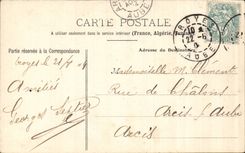 CARTE POSTALE
A utiliser seulement dans le service intérieur (France, Algérie,
Partie réservée à la Correspondance
Adresse du Destinataire
TROYES
AUBE
AUBE
Troyes le
Amitiés
Georges
Mademoiselle M. Clément
Rue de Châlons
Arcis s/ Aube
Arcis